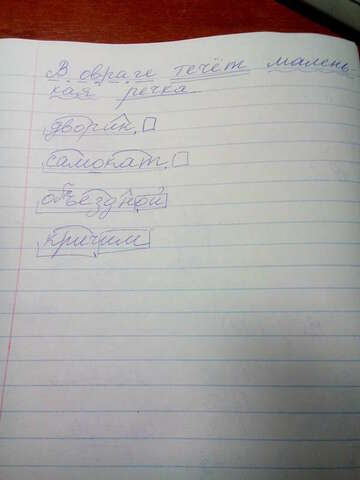 В овраге течёт малень-
кая речка.
дворик
самокат
объездной
кричим